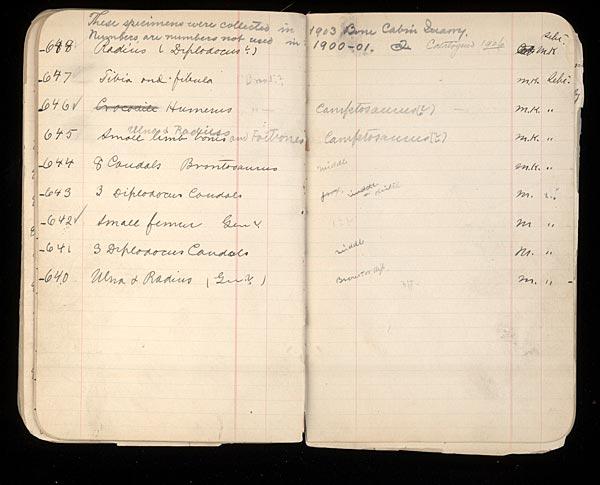 These specimens were collected in 1903 Bone Cabin Quarry.
Numbers are numbers not used in 1900-01. Catalogued 1906
648 Radius (Diplodocus?) M.K.
647 Tibia and fibula M.K.
646 ✓ Crocodile Humerus Camptosaurus(?) — M.K. "
Ulna & Radius
645 Small limb bones and Footbones Camptosaurus(?) M.K. "
644 8 Caudals Brontosaurus middle M.K. "
643 3 Diplodocus Caudals middle M. "
642 ✓ Small femur Gen? M "
641 3 Diplodocus Caudals middle M. "
640 Ulna & Radius (Gen?) M. "